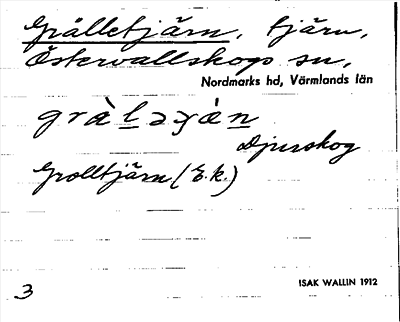 Grålletjärn, tjärn,
Östervallskogs sn,
Nordmarks hd, Värmlands län
gràləɣán
Djurskog
Grolltjärn (E.k.)
3
ISAK WALLIN 1912